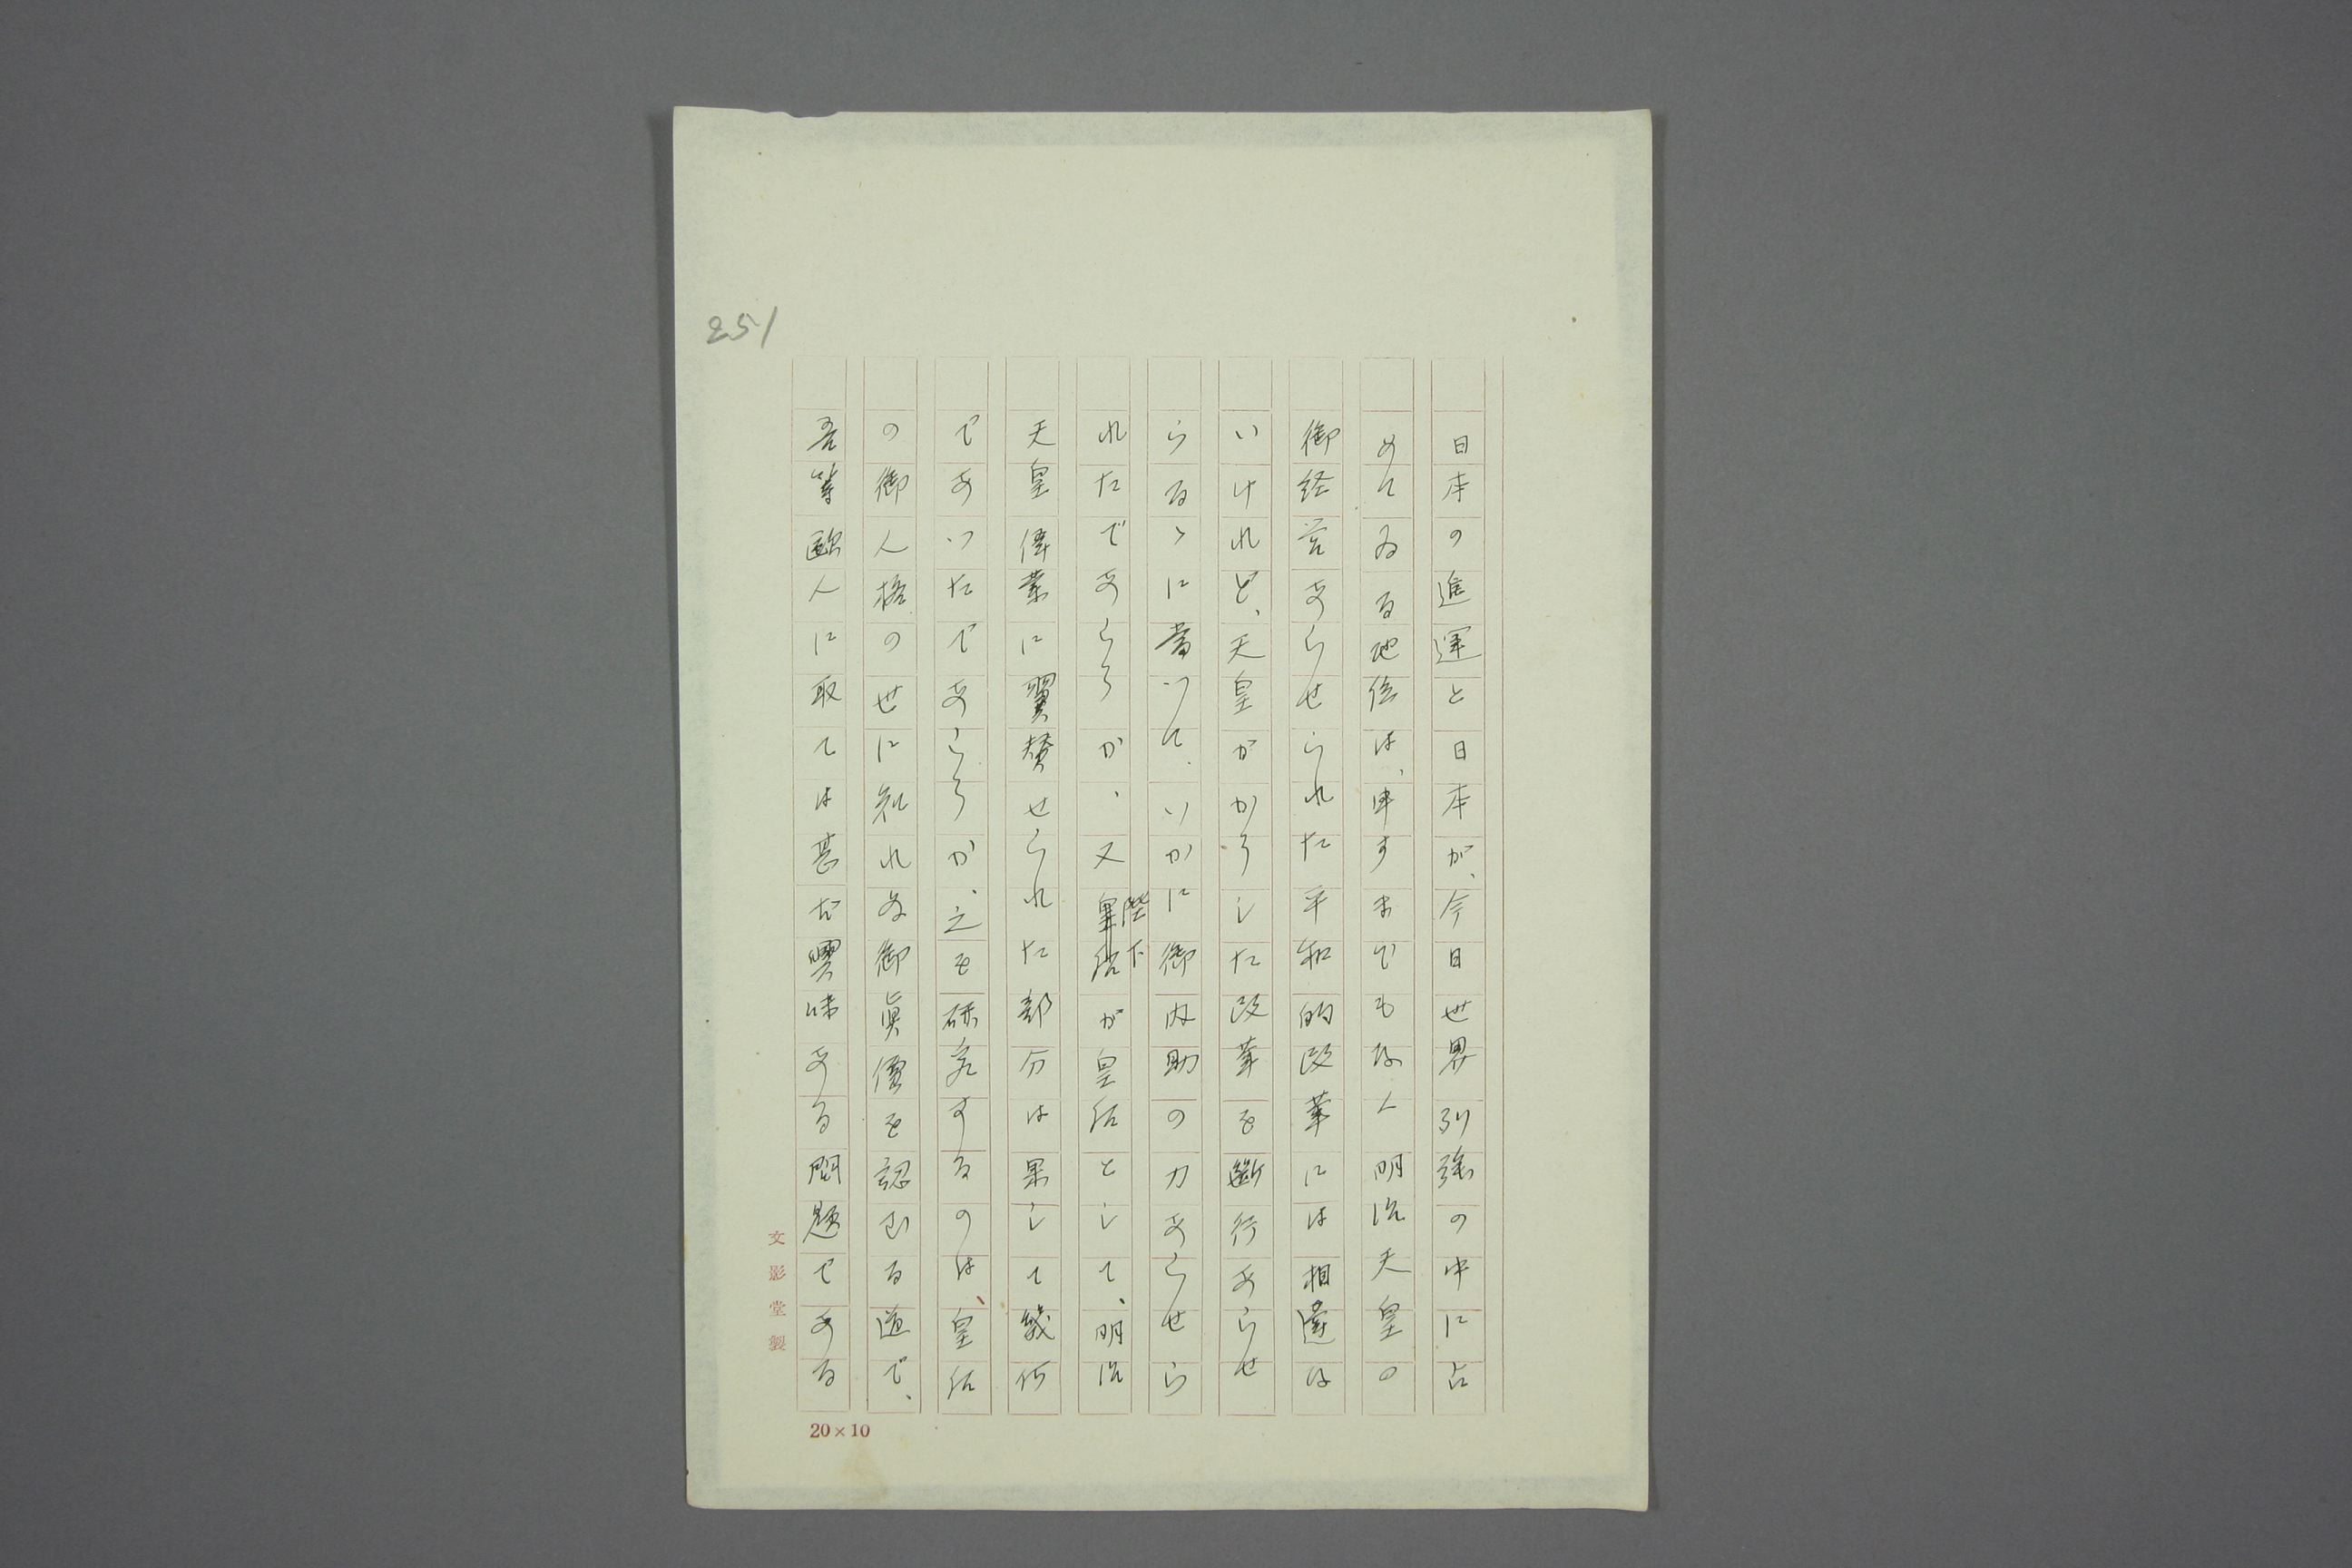 251
日本の進運と日本が、今日世界列強の中に占
めてゐる地位は、申すまでもなく明治天皇の
御経営あらせられた平和的改革には相違な
いけれど、天皇がかうした改革を斷行あらせ
らるゝに當つて、いかに御内助の力あらせら
れたであらうか、又陛下が皇后として、明治
天皇偉業に翼賛せられた部分は果して幾何
であつたであらうか、之を研究するのは、皇后
の御人格の世に知れぬ御眞價を認むる道で、
吾等歐人に取ては甚だ興味ある問題である
文影堂製
20×10